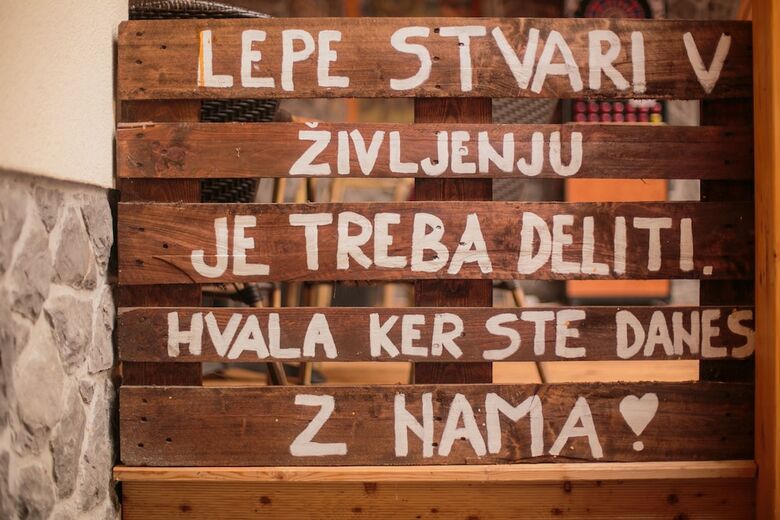 LEPE STVARI V
ŽIVLJENJU
JE TREBA DELITI.
HVALA KER STE DANES
Z NAMA!